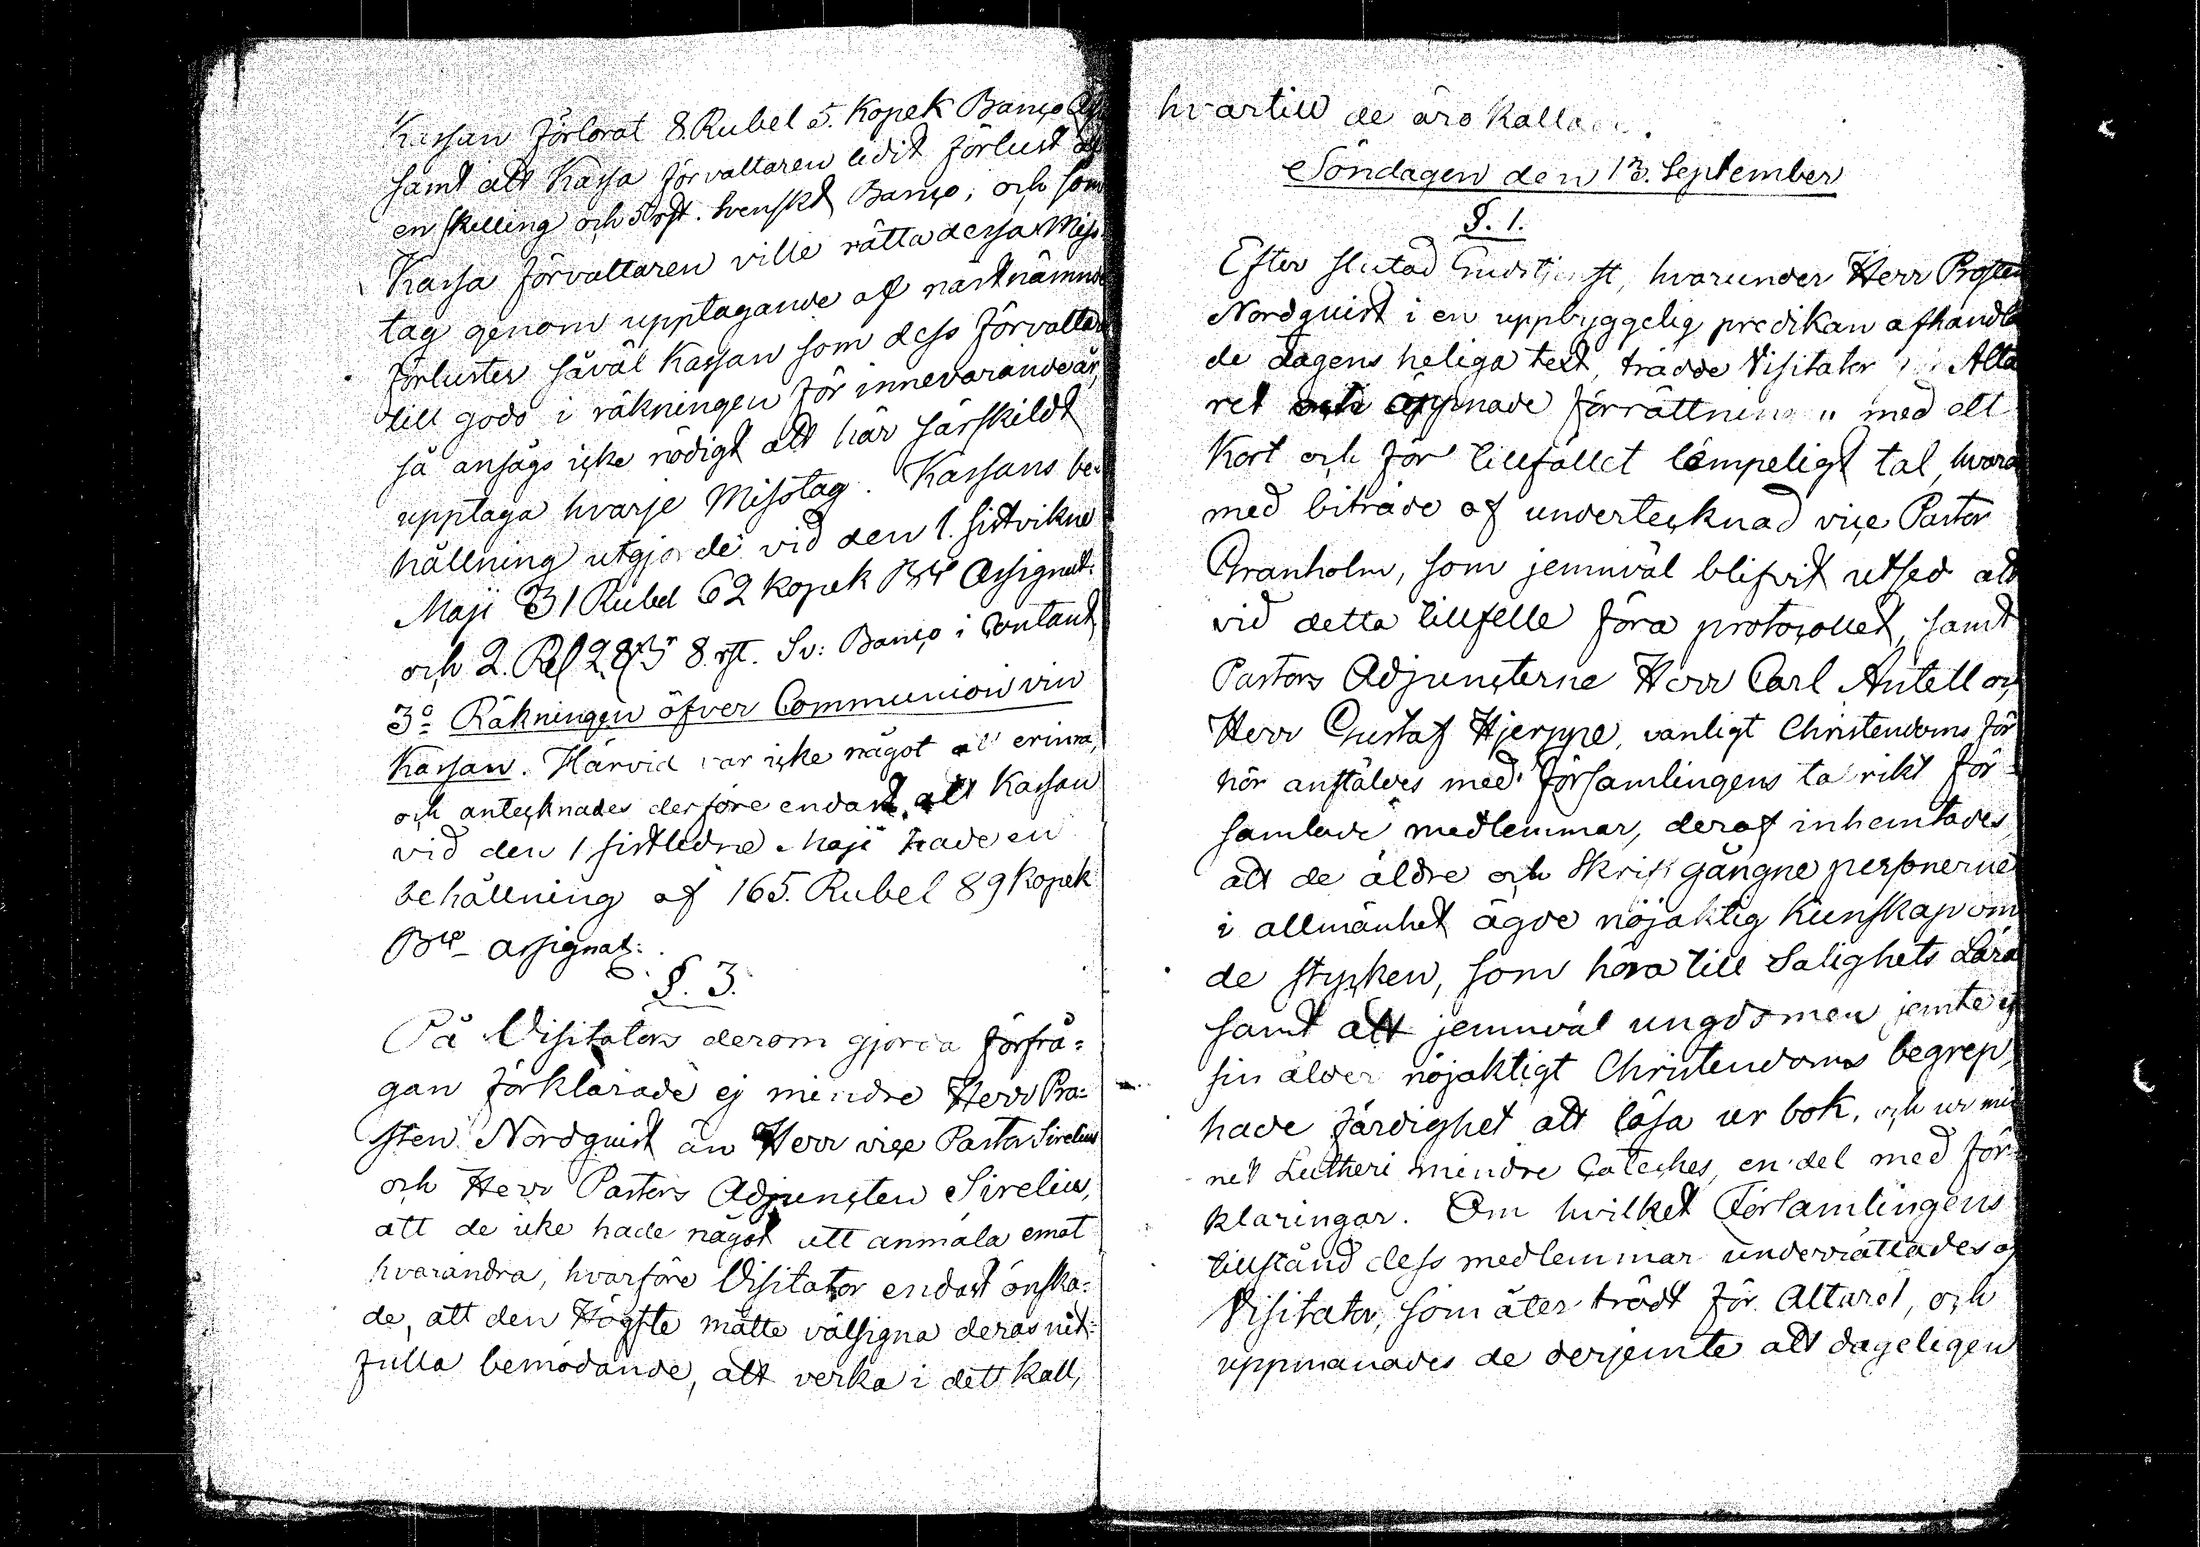 Kassan förlorat 8 Rubel 5. Kopek Banco
samt att Kassa förvaltaren lidit förlust af
en skilling och 5 rst. Svenskt Banco; och som
Kassa förvaltaren ville rätta dessa Miss-
tag genom upptagande af nästnämnde
förluster såväl Kassan som dess förvaltare
till godo i räkningen för innevarande år,
så ansågs icke nödigt att här särskildt
upptaga hvarje Misstag. Kassans be-
hållning utgjorde vid den 1. sistvikne
Maji 31 Rubel 62 kopek Bco Assignat:
och 2. 8 rst. Sv: Banco i Contant
3o Räkningen öfver Communion vin
Kassan. Härvid var icke något att erinra,
och antecknades derföre endast, att Kassan
vid den 1 sistledne Maji hade en
behållning af 165. Rubel 89 Kopek
Bco assignat:
§. 3.
På Visitators derom gjorda förfrå-
gan förklarade ej mindre Herr Pro-
sten Nordquist än Herr vice Pastor Sirelius
och Herr Pastors Adjuncten Sirelius,
att de icke hade något att anmäla emot
hvarandra, hvarföre Visitator endast önska-
de, att den Högste måtte välsigna deras nit-
fulla bemödande, att verka i dett kall,
hvartill de äro kallade.
Söndagen den 13. September
§. 1.
Efter slutad Gudstjenst, hvarunder Herr Prosten
Nordquist i en uppbyggelig predikan afhandla-
de dagens heliga text, trädde Visitator Alta
ret och öppnade förrättningen med ett
Kort och för tillfället lämpeligt tal, hvara
med biträde af undertecknad vice Pastor
Granholm, som jemnväl blifvit utsed att
vid detta tillfelle föra protocollet, samt
Pastors Adjuncterne Herr Carl Antell och
Herr Gustaf Hjerppe, vanligt Christendoms för
hör anställdes med församlingens talrikt för-
samlade medlemmar, deraf inhemtades
att de äldre och Skriftgångne personerne
i allmänhet ägde nöjaktig Kunskap om
de stycken, som höra till Salighets Läran
samt att jemnväl ungdomen jemte ef
sin ålder nöjaktigt Christendoms begrep,
hade färdighet att läsa ur bok, och ur min
net Lutheri mindre Cateches, en del med för-
klaringar. Om hvilket Församlingens
tillstånd dess medlemmar underrättades af
Visitator, som åter trädt för Altaret, och
uppmanades de derjemte att dageligen